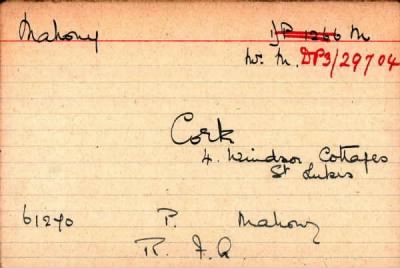 Mahony DP 1266 M
W. M. DP3/29704
Cork
4. Windsor Cottages
St Lukes
61270 P. Mahony
R. F. A.